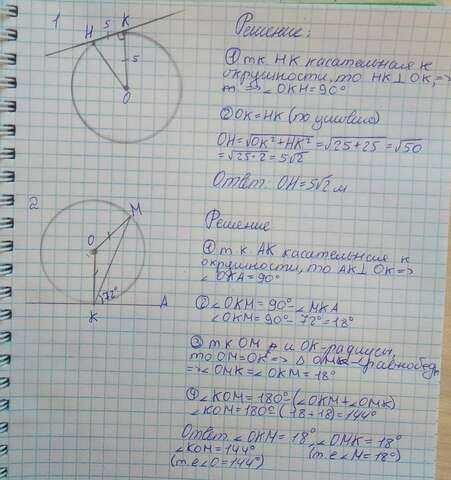 1
H
5
K
5
O
Решение:
① т.к. HK касательная к
окружности, то HK⊥OK, =>
=> ∠OKH=90°
② OK=HK (по условию)
OH=√OK²+HK²=√25+25=√50
=√25·2=5√2
Ответ: OH=5√2 м
2
M
O
72°
K
A
Решение
① т к AK касательная к
окружности, то AK⊥OK =>
∠OKA=90°
② ∠OKM=90°-∠MKA
∠OKM=90°-72°=18°
③ т к OM и OK-радиусы,
то OM=OK => Δ OMK-равнобедр
=>∠OMK=∠OKM=18°
④ ∠KOM=180°-(∠OKM+∠OMK)
∠KOM=180°-(18+18)=144°
Ответ: ∠OKM=18°, ∠OMK=18°
∠KOM=144° (т.е ∠M=18°)
(т.е ∠O=144°)